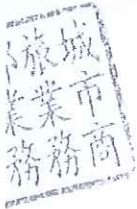 城市商
旅業務
業務